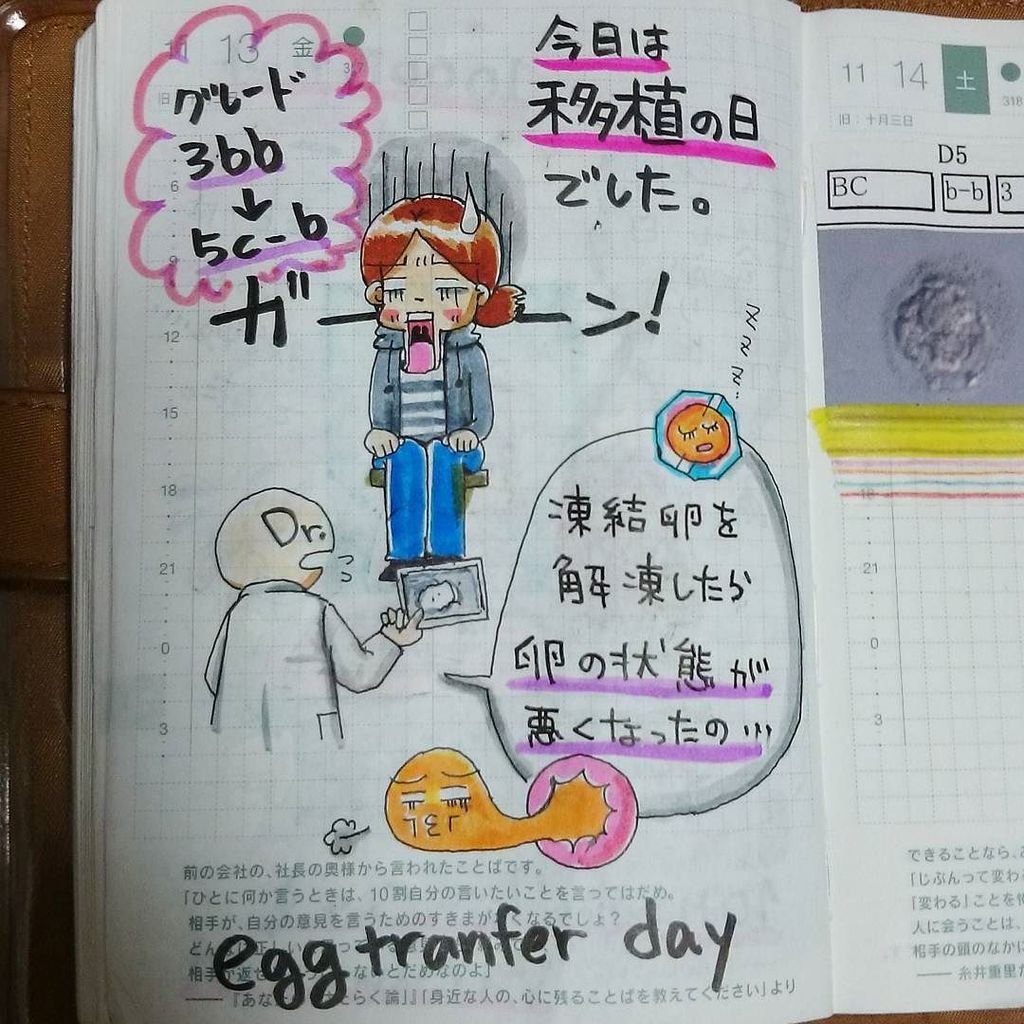 11 13 金
317
グレード
3bb
↓
5c-b
今日は
移植の日
でした。
ガーン!
Dr.
zzzz
凍結卵を
解凍したら
卵の状態が
悪くなったの…
6
9
12
15
18
21
0
3
前の会社の、社長の奥様から言われたことばです。
「ひとに何か言うときは、10割自分の言いたいことを言ってはだめ。
相手が、自分の意見を言うためのすきまが なくなるでしょ?
相手 返せ ないとだめなのよ」
──『あな たらく論』『身近な人の、心に残ることばを教えてください』より
egg tranfer day
11 14 土
318
旧:十月三日
D5
BC b-b 3
18
21
0
3
できることなら、
「じぶんって変わ
「変わる」ことを
人に会うことは、
相手の頭のなかに
── 糸井重里